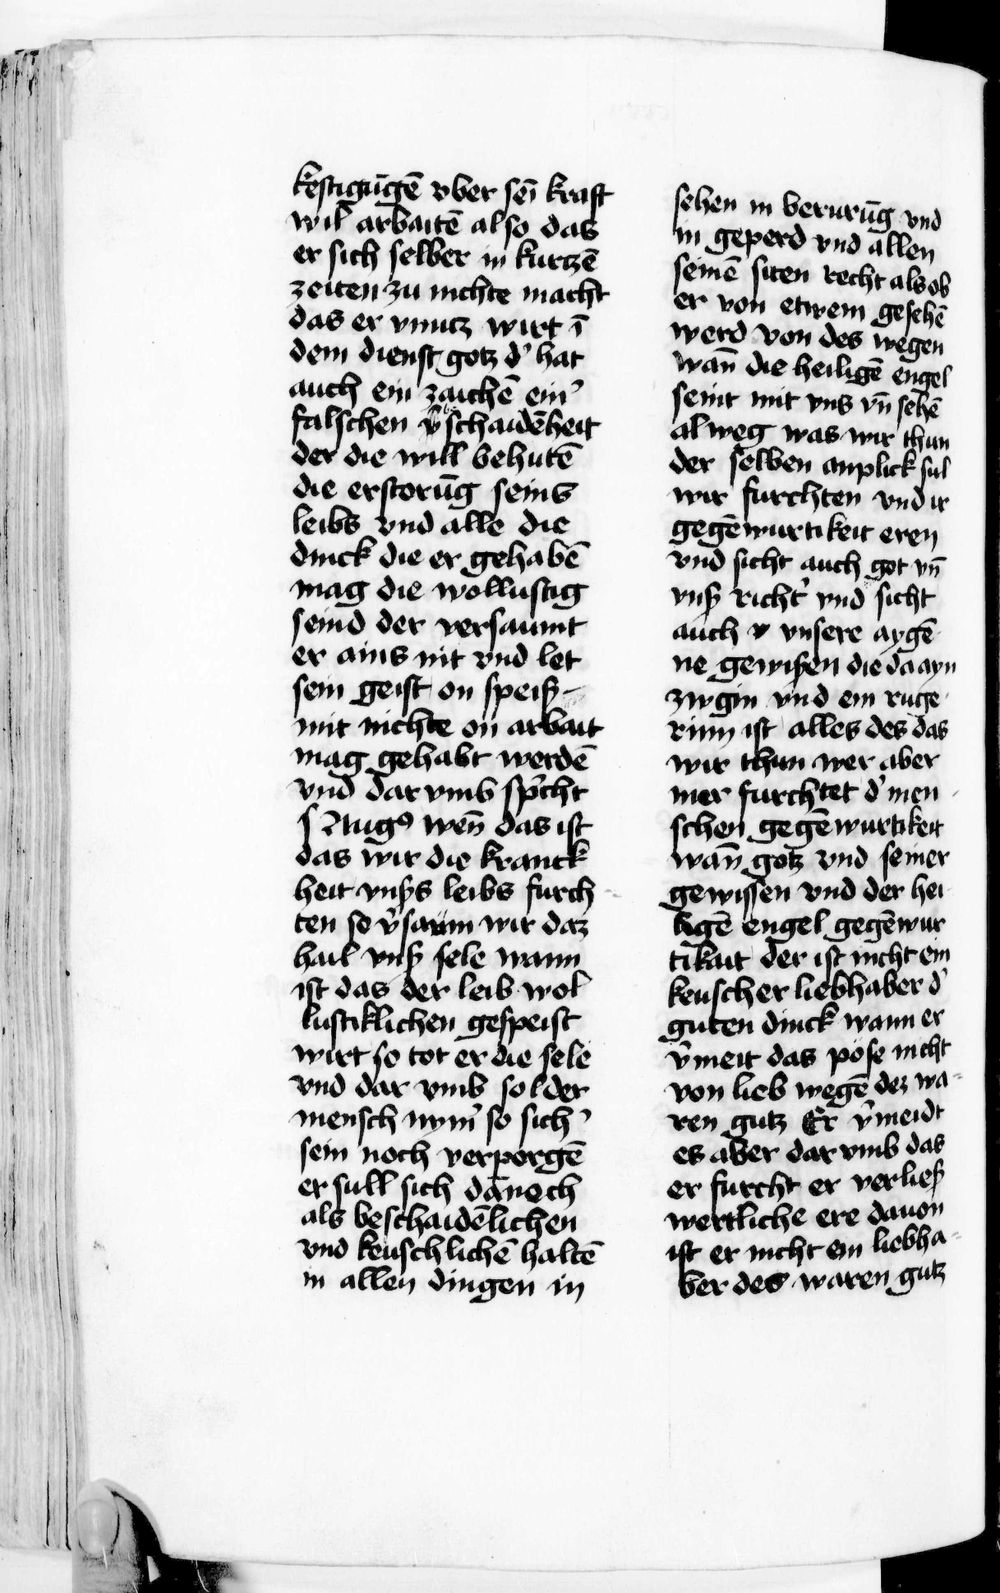 kestigūgē vber sei̅ kraft
wil arbaitē also das
er sich selber in kurtzē
zeiten zu nichte macht
das er vnnutz wirt ī
dem dienst gotz d' hat
auch ein zaichē ein'
falschen v̓schaidēheit
der die will behutē
die erstorūg seins
leibs vnd alle die
dinck die er gehabē
mag die wollustig
seind der versaumt
er ains nit vnd let
sein geist on speiß
mit nichte on̄ arbait
mag gehabt werdē
vnd dar vmb sp̓cht
s Augꝰ wen̄ das ist
das wir die kranck
heit vnßs leibs furch
ten so v̓saum wir daz
hail vnß sele wann
ist das der leib wol
lustiklichen gespeist
wirt so tot er die sele
vnd dar vmb sol der
mensch nym̓ so sich'
sein noch verporgē
er sull sich dānoch
als beschaidēlichen
vnd keuschlichē haltē
in allen dingen in
sehen in berurūg vnd
in geperd vnd allen
seinē siten recht als ob
er von etwem gesehē
werd von des wegen
wan̄ die heiligē engel
seint mit vns vn̄ sehē
alweg was wir thun
der selben anplick sul
wir furchten vnd ir
gegēwurtikeit eren
vnd sicht auch got vn̄
vnß richt' vnd sicht
auch v vnsere aygē
ne gewißen die da ayn
zwgin vnd ein ruge
rinn ist alles des das
wir thun wer aber
mer furchtet d' men
schen gegēwurtikeit
wan̄ gotz vnd seiner
gewissen vnd der hei
ligē engel gegēwur
tikait der ist nicht ein
keuscher liebhaber d'
guten dinck wann er
v̓meit das pose nicht
von lieb wegē dez wa-
ren gutz Er v̓meidt
es aber dar vmb das
er furcht er verließ
wertliche ere davon
ist er nicht ein liebha-
ber des waren gutz